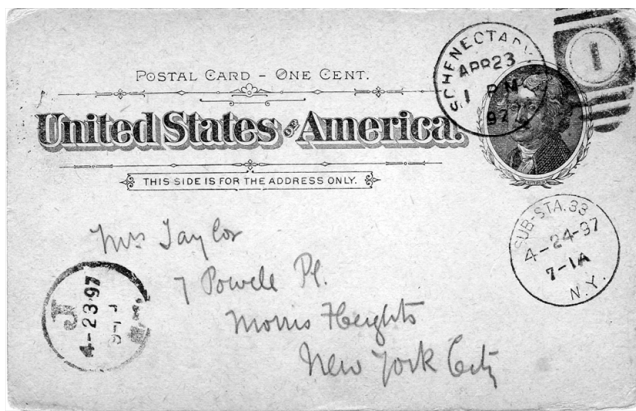 POSTAL CARD - ONE CENT.
United States of America.
THIS SIDE IS FOR THE ADDRESS ONLY.
SCHENECTADY
APR 23
1 PM
97
1
SUB-STA. 33
4-24-97
7-1A
N.Y.
Mrs Taylor
7 Powell Pl.
Morris Heights
New York City
J
4-23-97